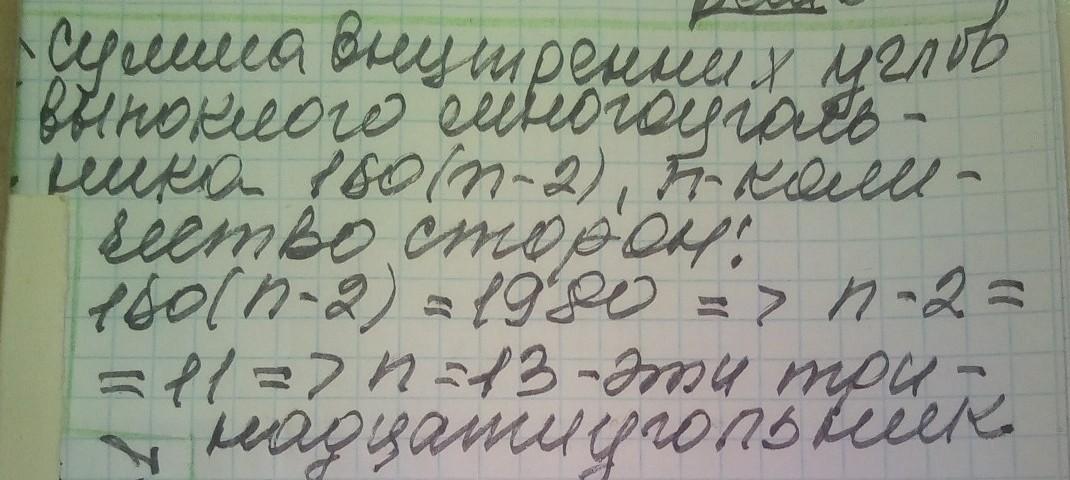 Сумма внутренних углов
выпоклого многоуголь-
ника 180(n-2), n-коли-
чество сторон:
180(n-2) = 1980 => n-2=
= 11 => n=13 - эти три-
надцатиугольник